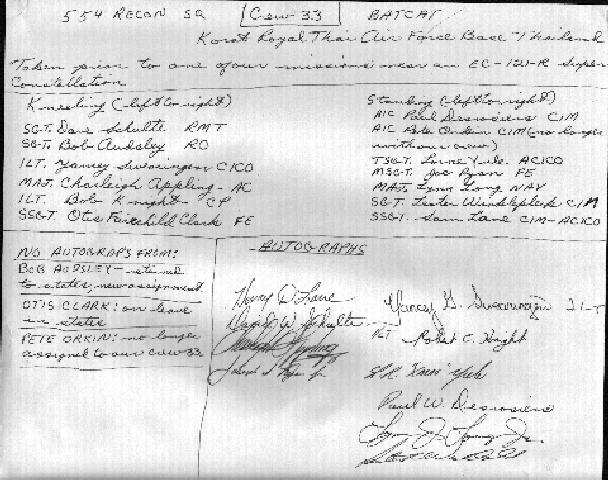 554 RECON SQ Crew 33 BATCAT
Korat Royal Thai Air Force Base Thailand
Taken prior to one of our missions near an EC-121-R Super
Constellation
Kneeling (left to right)
SGT. Dave Schulte RMT
SGT. Bob Audsley RO
1LT. Yancey Swearingen CICO
MAJ. Charleigh Appling - AC
1LT Bob Knight - CP
SSGT. Otis Fairchild Clark FE
Standing (left to right)
A1C Paul Desrosiers CIM
A1C Pete Orkin CIM (no longer
on this crew)
TSGT. Yule. ACICO
MSGT. Joe Ryan FE
MAJ. Lynn Long NAV
SGT. Lester Winklepleck CIM
SSGT. Sam Lane CIM-ACICO
NO AUTOGRAPHS FROM:
BOB AUDSLEY - returned
to states, new assignment
OTIS CLARK: on leave
in states
PETE ORKIN: no longer
assigned to our crew 33
AUTOGRAPHS
Henry D Lane
David W. Schulte
Yancey G. Swearingen 1LT
Robert E. Knight
Yule
Paul W. Desrosiers